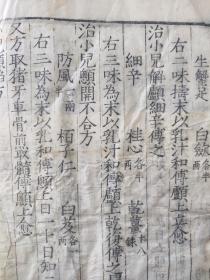 生蠏足 白蘞各半兩
右二味擣末以乳汁和傅顱上立愈
治小兒解顱細辛傅之方
細辛 桂心各半兩 乾薑
右三味為末以乳汁和傅顱上乾後
治小兒顱開不合方
防風一兩半 栢子仁 白芨各一兩
右三味為末以乳和傅顱上日一十日知
又方取猪牙車骨煎取髓傅顱上愈